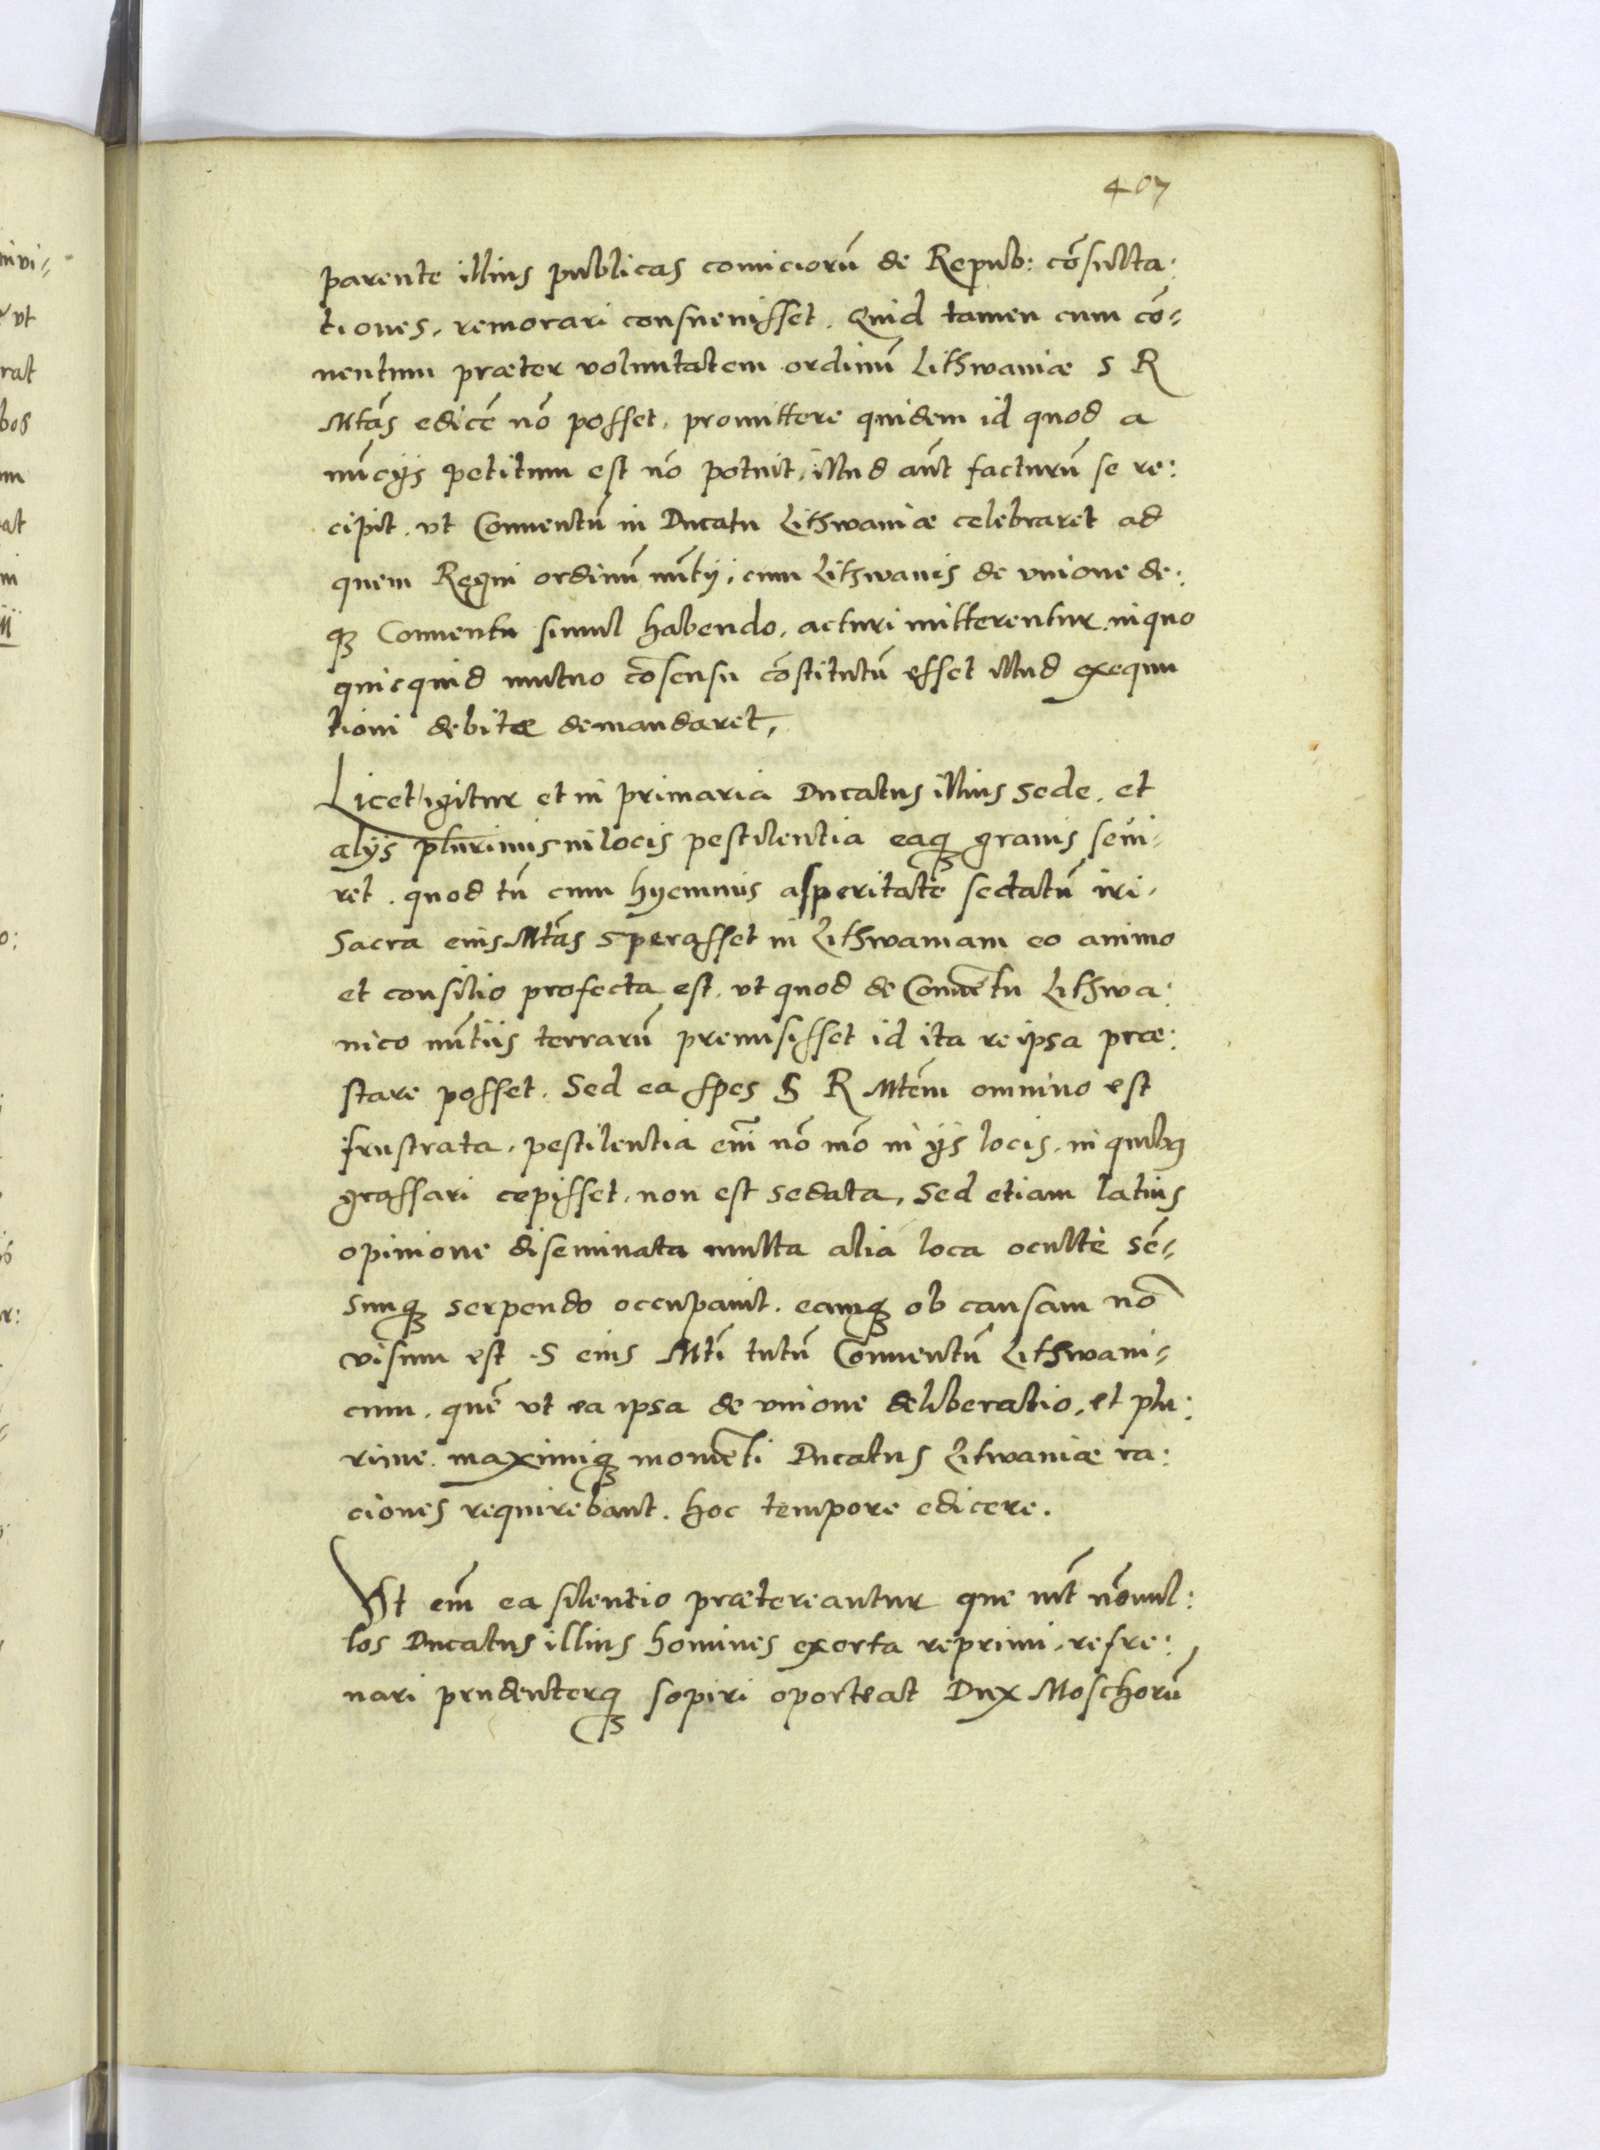 407
parente illius publicas comiciorū de Repub: cōsulta:
tiones, remorari consueuisset. Quid tamen cum cō-
uentum præter voluntatem ordinū Lithwaniæ S R
Mtãs edicē nō posset, promittere quidem id quod a
nūcijs petitum est nō potuit, illud aūt facturū se re:
cipit. vt Conuentū in Ducatu Lithwaniæ celebraret ad
quem Regni ordinū nūtij, cum Lithwanis de vnione de:
qȝ Conuentu simul habendo, acturi mitterentur, in quo
quicquid mutuo cōsensu cōstitutū esset illud exequu
tioni debitæ demandaret,
Licet igitur et in primaria Ducatus illius sede, et
alijs plurimis in locis pestilentia eaqȝ grauis seui-
ret. quod tū cum hyemnis asperitate sedatū iri,
Sacra eius Mtãs sperasset in Lithwaniam eo animo
et consilio profecta est, vt quod de Conuētu Lithwa:
nico nūtiis terrarū premisisset id ita reipsa præ:
stare posset. Sed ea spes S R Mtēm omnino est
frustrata, pestilentia em̄ nō mō in ijs locis, in quibꝯ
grassari cepisset, non est sedata, sed etiam latius
opinione diseminata multa alia loca ocultè sē-
sumqȝ serpendo occupauit. eamqȝ ob causam nō
visum est S eius Mtī tutū Conuentū Lithwani-
cum, quē vt ea ipsa de vnione deliberatio, et plu:
rime. maximiqȝ momēti Ducatus Litwaniæ ra:
ciones requirebant. hoc tempore edicere.
Vt em̄ ea silentio prætereantur que iñt nōnul:
los Ducatus illius homines exorta reprimi, refre:
nari prudenterqȝ sopiri oporteat Dux Moschorū